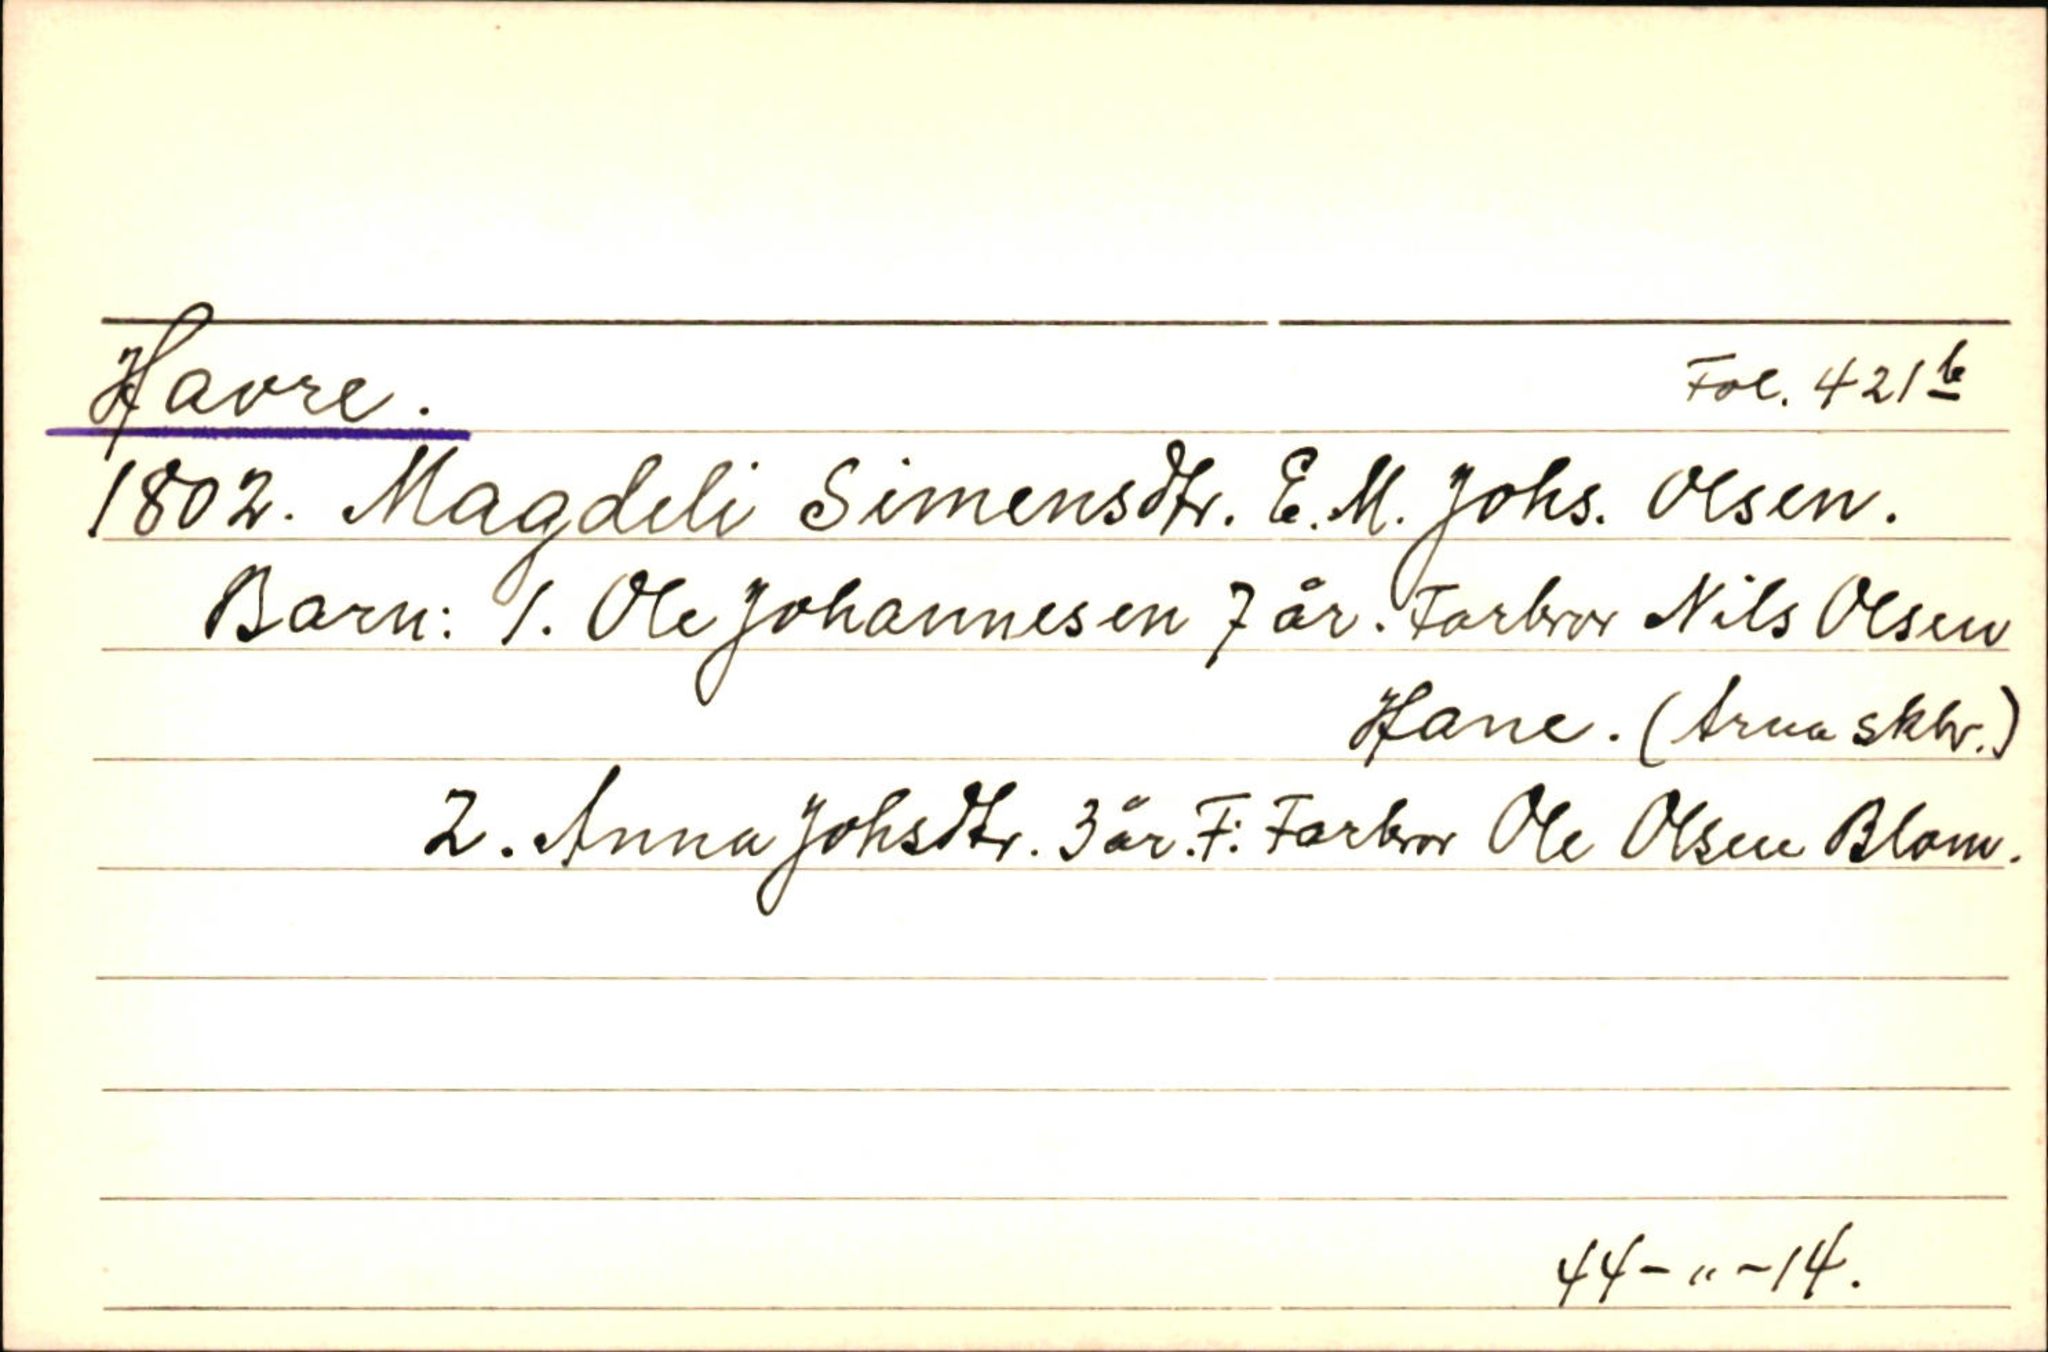 Havre. Fol. 421b
1802. Magdeli Simensdtr. E.M. Johs. Olsen.
Barn: 1. Ole Johannesen 7 år. Farbror Nils Olsen
Hane. (Arna skbr.)
2. Anna Johsdtr. 3 år. F: Farbror Ole Olsen Blom.
44-"-14.